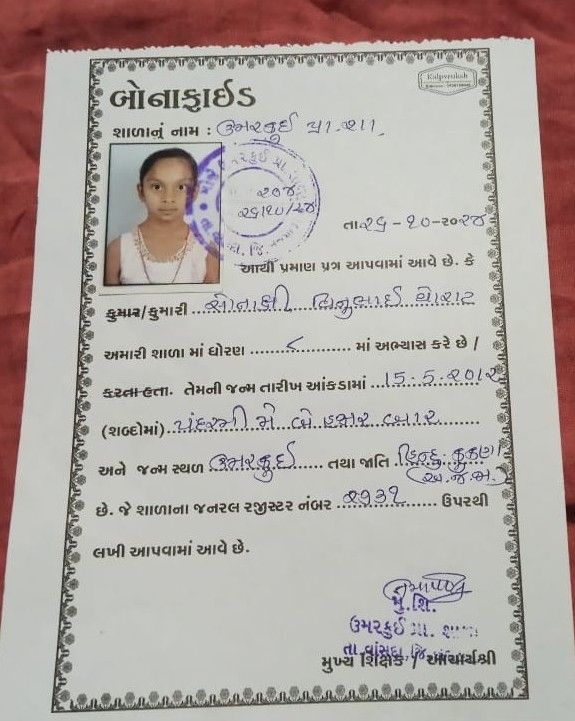 Kalpvruksh
બોનાફાઈડ
શાળાનું નામ : ઉમરકુઈ પ્રા. શા.
૨૦૪
૨૬/૧૦/૨૪
તા ૨૬-૧૦-૨૦૨૪
આથી પ્રમાણ પત્ર આપવામાં આવે છે. કે
કુમાર/કુમારી સોનાક્ષી બિનુભાઈ થોરાટ
અમારી શાળા માં ધોરણ ૮ માં અભ્યાસ કરે છે /
કરતા હતા. તેમની જન્મ તારીખ આંકડામાં 15-5-૨૦૧૨
(શબ્દોમાં) પંદરમી મે બે હજાર બાર
અને જન્મ સ્થળ ઉમરકુઈ તથા જાતિ હિન્દુ કુકણા
(અ.જ.જા.)
છે. જે શાળાના જનરલ રજીસ્ટર નંબર ૨૧૩૧ ઉપરથી
લખી આપવામાં આવે છે.
મુ. શિ.
ઉમરકુઈ પ્રા. શાળા
તા. વાંસદા, જિ.
મુખ્ય શિક્ષક / આચાર્યશ્રી